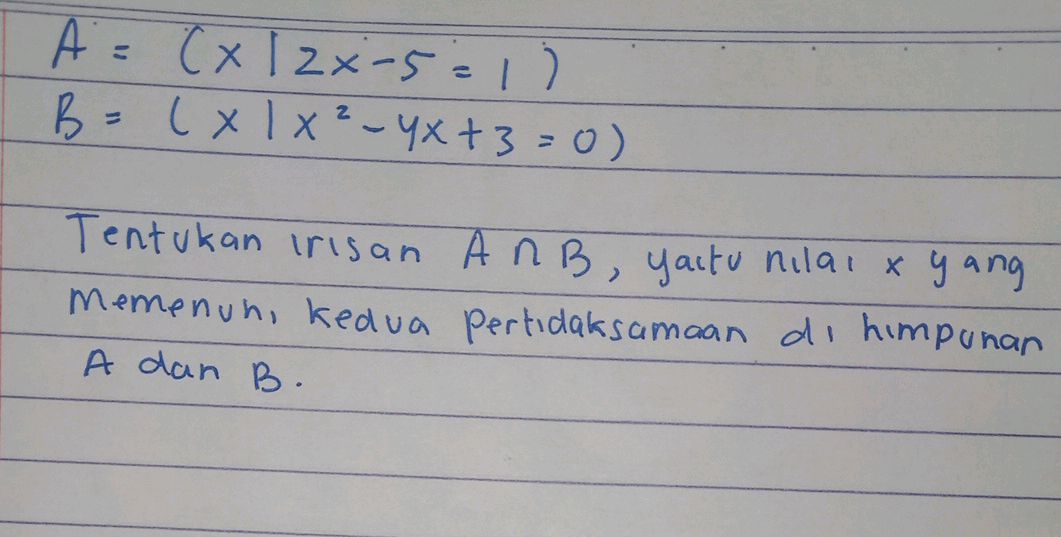 A = (x | 2x - 5 = 1)
B = (x | x² - 4x + 3 = 0)
Tentukan irisan A ∩ B, yaitu nilai x yang
memenuhi kedua pertidaksamaan di himpunan
A dan B.